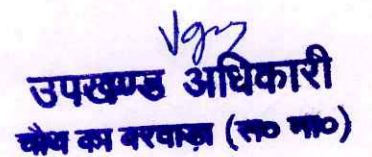 उपखण्ड अधिकारी
चौथ का बरवाड़ा (स० मा०)